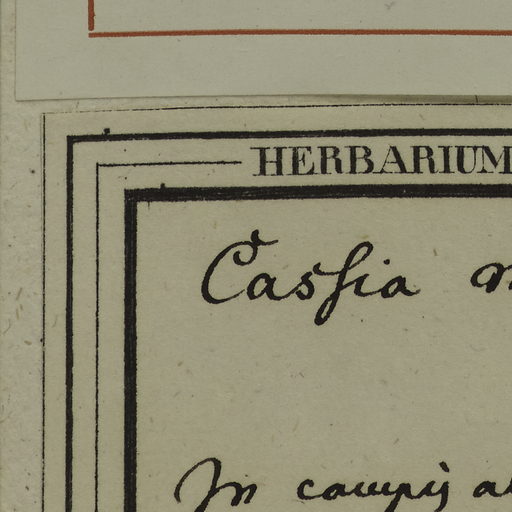 HERBARIUM
Cassia
In campis